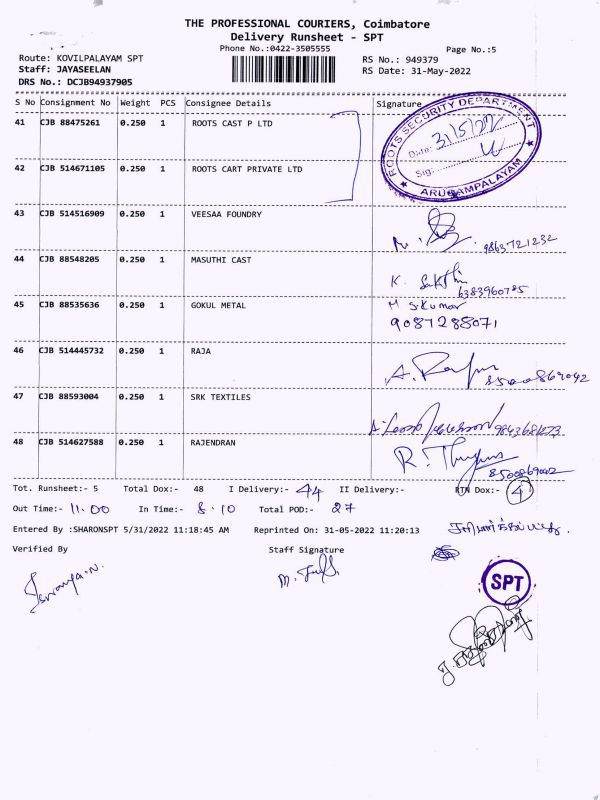 THE PROFESSIONAL COURIERS, Coimbatore
Delivery Runsheet - SPT
Phone No.:0422-3505555
Page No.:5
Route: KOVILPALAYAM SPT
RS No.: 949379
Staff: JAYASEELAN
RS Date: 31-May-2022
DRS No.: DCJB94937905
S No Consignment No Weight PCS Consignee Details Signature
41 CJB 88475261 0.250 1 ROOTS CAST P LTD
ROOTS SECURITY DEPARTMENT
Date: 31/5/22
Sig:
ARUGAMPALAYAM
42 CJB 514671105 0.250 1 ROOTS CART PRIVATE LTD
43 CJB 514516909 0.250 1 VEESAA FOUNDRY
9863721232
44 CJB 88548205 0.250 1 MASUTHI CAST
K. Sakthi
6383960785
45 CJB 88535636 0.250 1 GOKUL METAL
M Sikumar
9087288071
46 CJB 514445732 0.250 1 RAJA
8500869042
47 CJB 88593004 0.250 1 SRK TEXTILES
48 CJB 514627588 0.250 1 RAJENDRAN
Tot. Runsheet:- 5 Total Dox:- 48 I Delivery:- 44 II Delivery:- RTN Dox:- 4
Out Time:- 11.00 In Time:- 8.10 Total POD:- 27
Entered By :SHARONSPT 5/31/2022 11:18:45 AM Reprinted On: 31-05-2022 11:20:13
Verified By Staff Signature
SPT